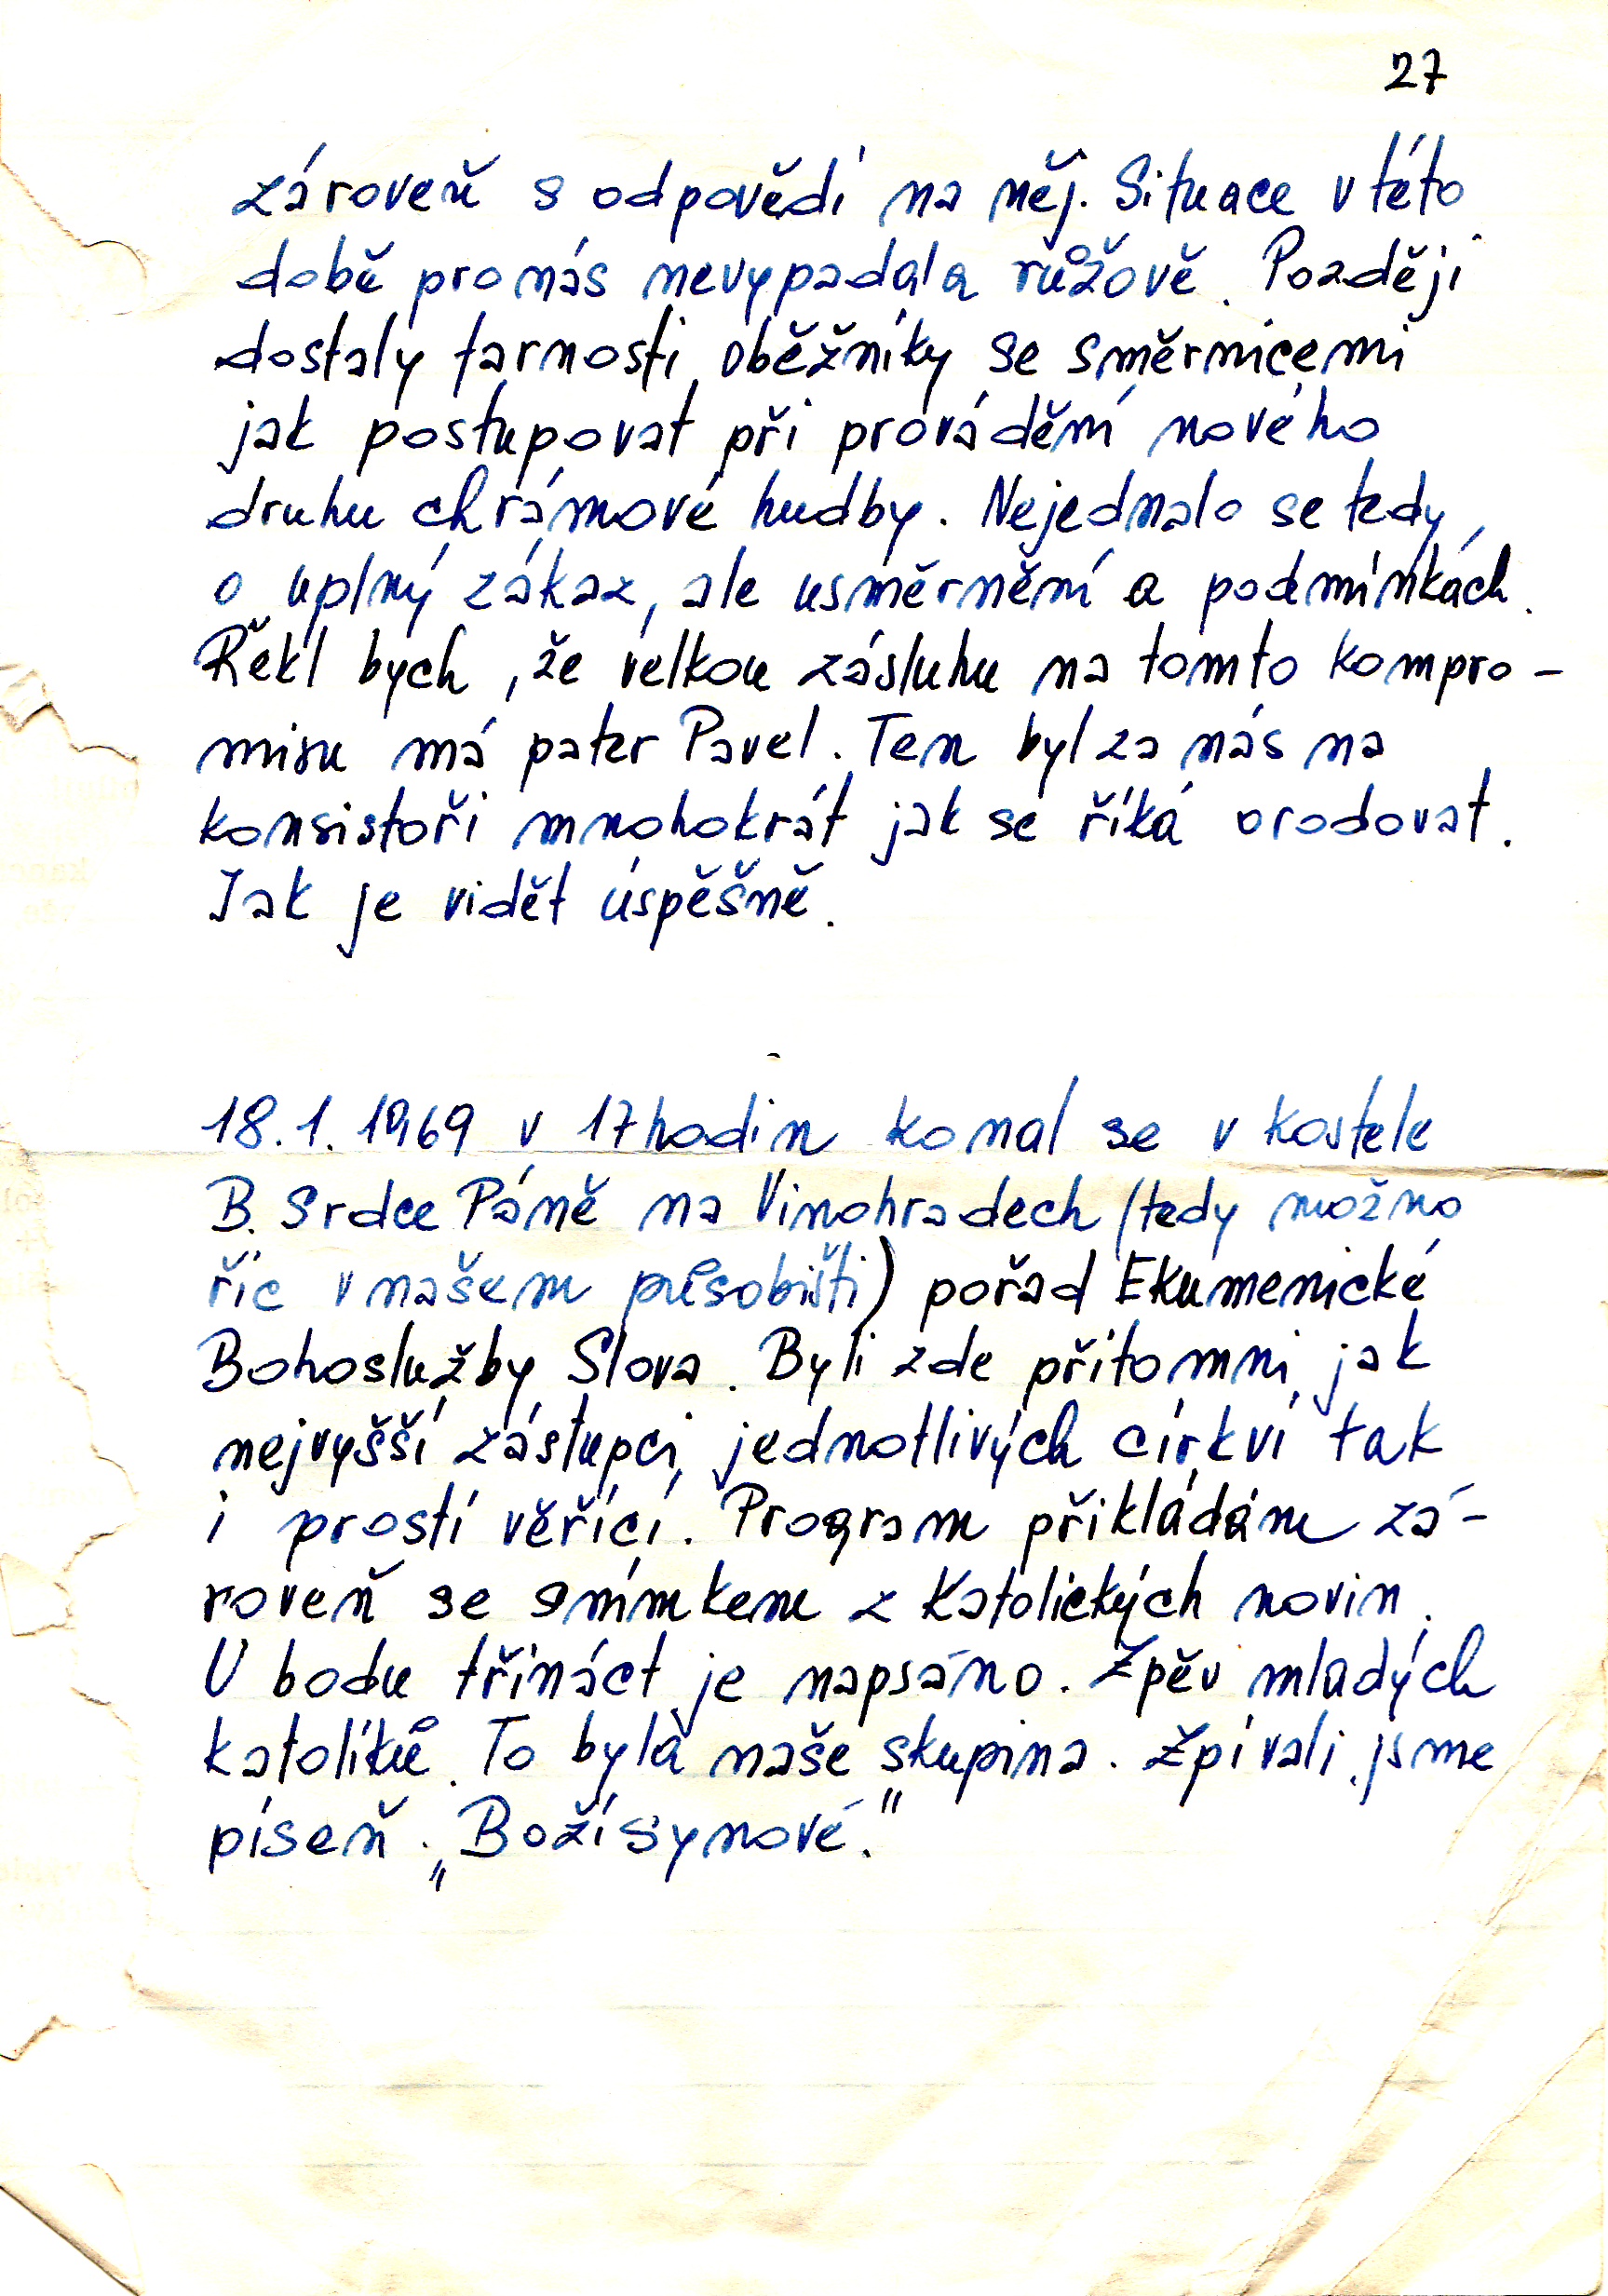 27
zároveň s odpovědí na něj. Situace v této
době pro nás nevypadala růžově. Později
dostaly farnosti oběžníky se směrnicemi
jak postupovat při provádění nového
druhu chrámové hudby. Nejednalo se tedy
o úplný zákaz, ale usměrnění a podmínkách.
Řekl bych, že velkou zásluhu na tomto kompro-
misu má pater Pavel. Ten byl za nás na
konsistoři mnohokrát jak se říká orodovat.
Jak je vidět úspěšně.
18.1.1969 v 17 hodin konal se v kostele
B. Srdce Páně na Vinohradech (tedy možno
říc v našem působišti) pořad Ekumenické
Bohoslužby Slova. Byli zde přítomni jak
nejvyšší zástupci jednotlivých církví tak
i prostí věřící. Program přikládám zá-
roveň se snímkem z Katolických novin.
V bodu třináct je napsáno. Zpěv mladých
katolíků. To byla naše skupina. Zpívali jsme
píseň. „Boží synové."